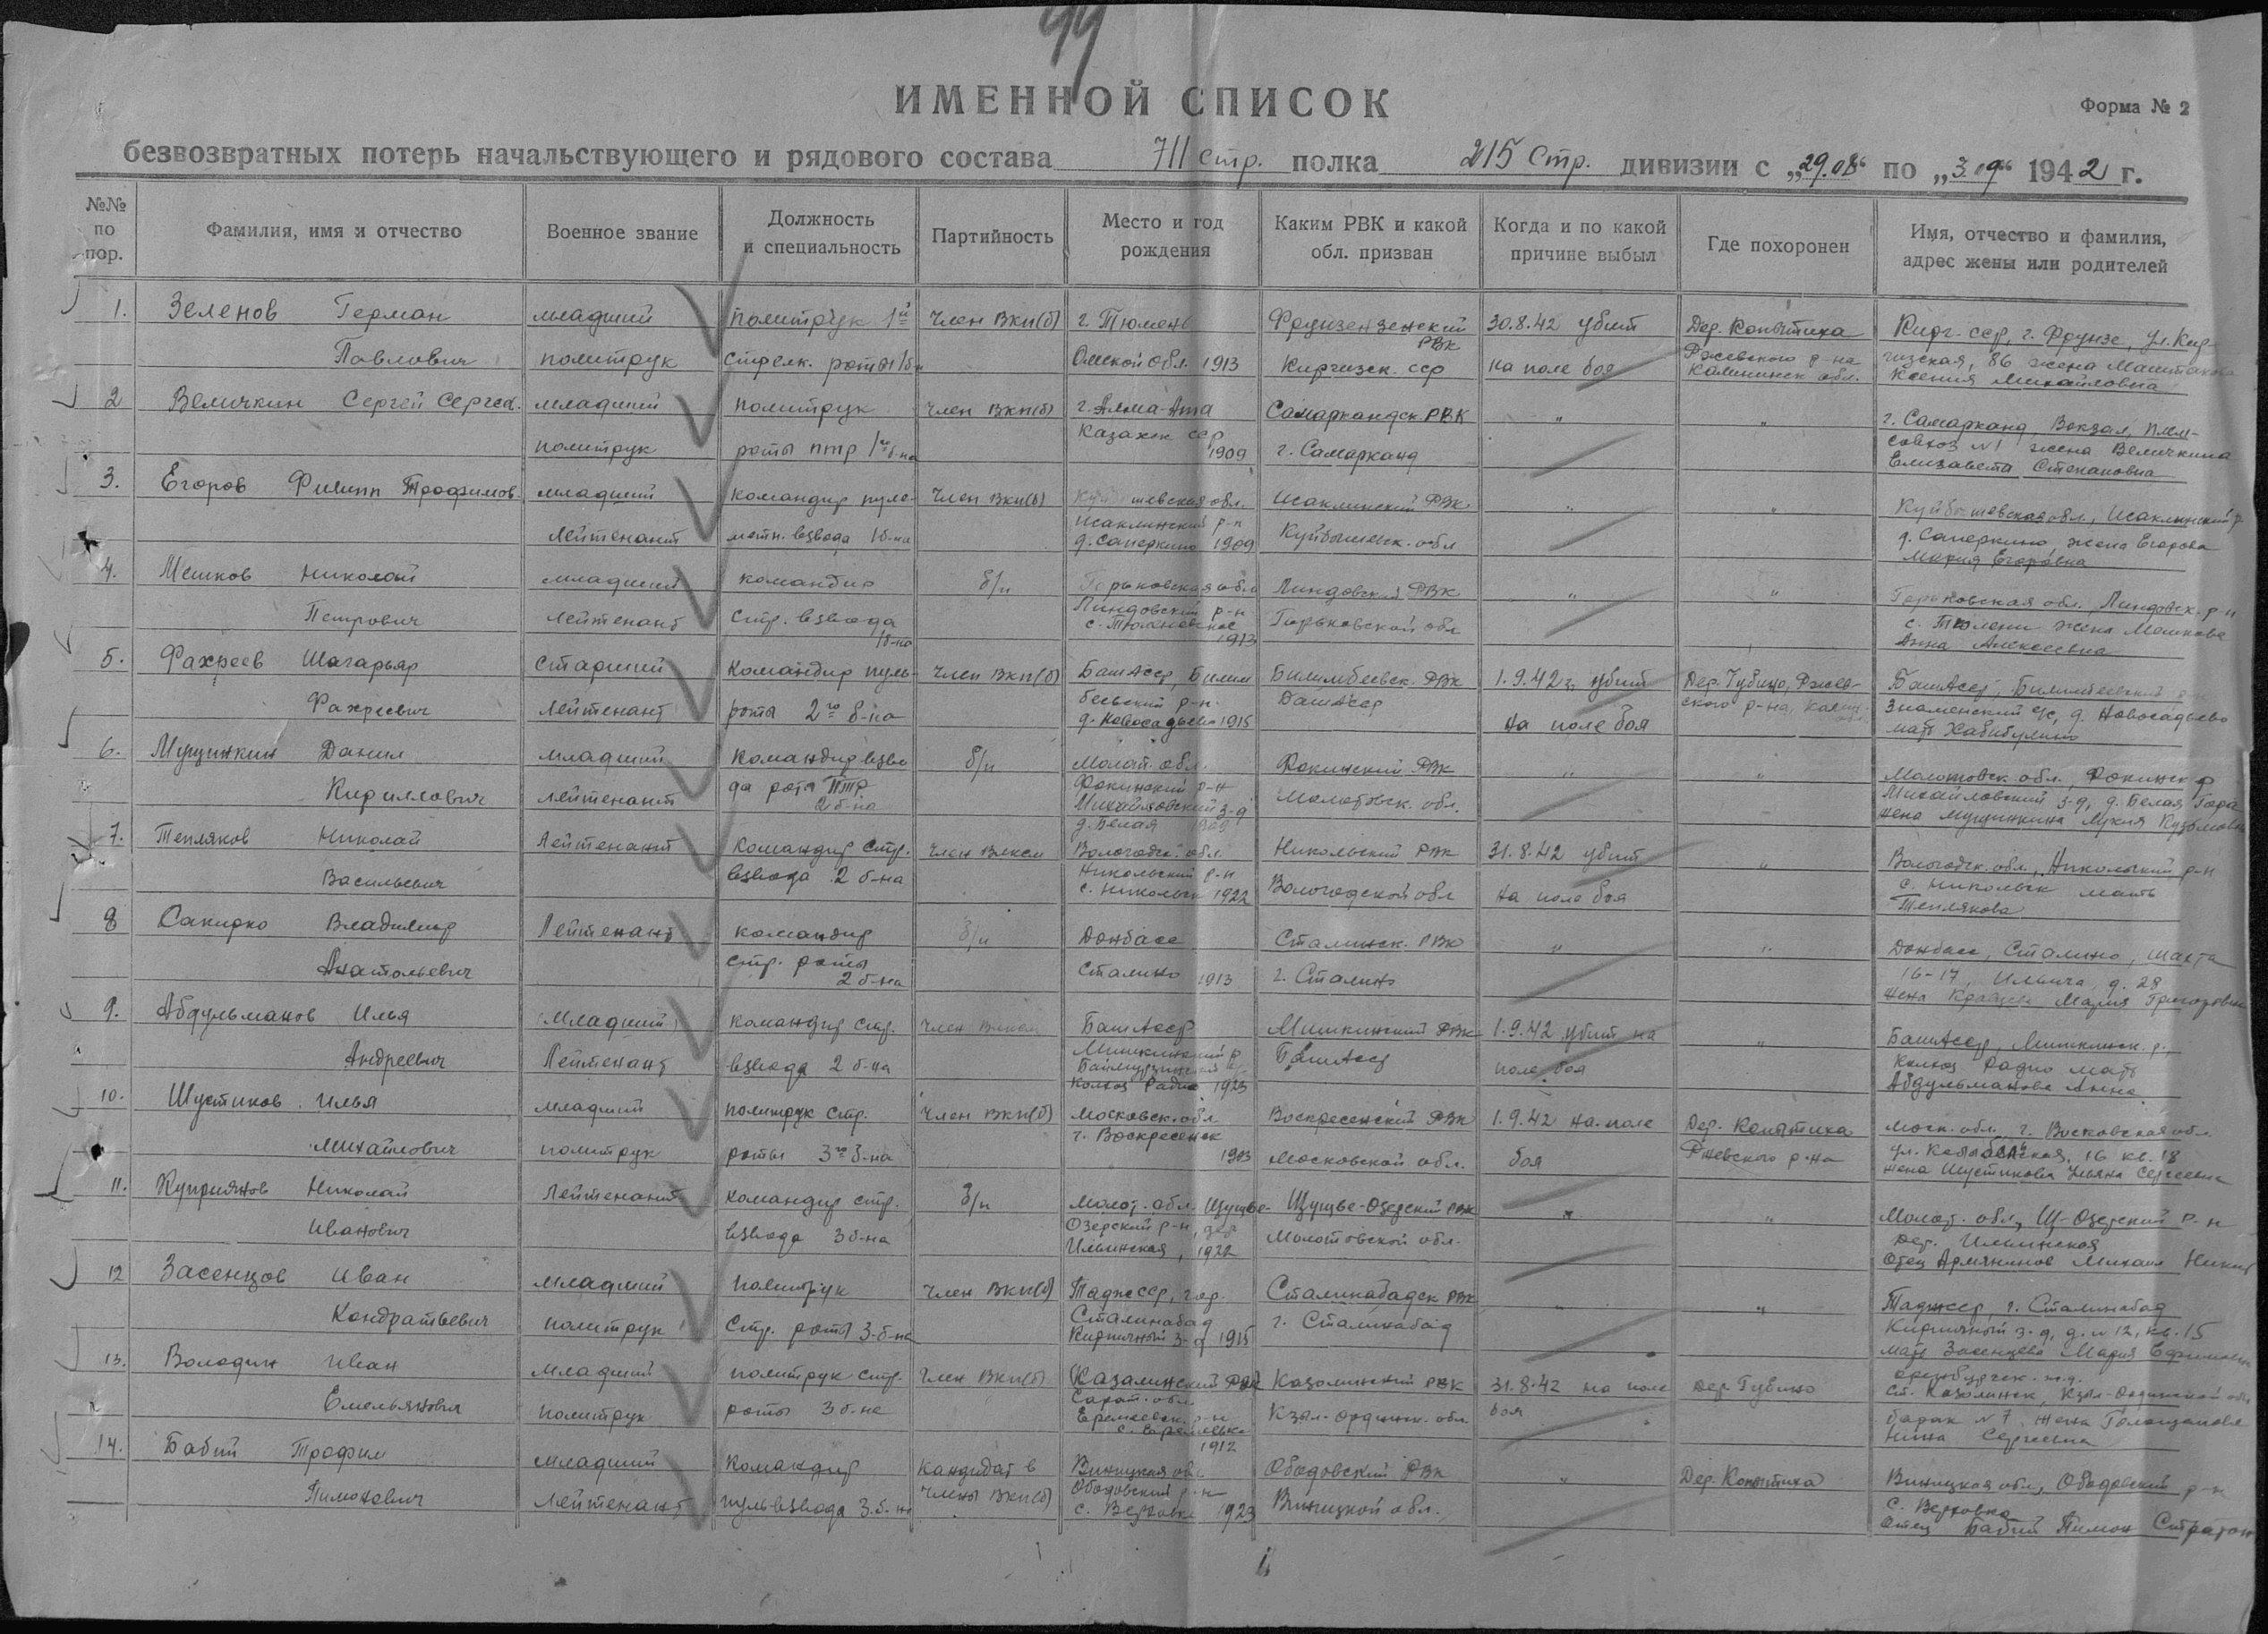 99
ИМЕННОЙ СПИСОК
Форма № 2
безвозвратных потерь начальствующего и рядового состава 711 стр. полка 215 Стр. дивизии с „29.08“ по „3.09“ 1942 г.
№№ по пор.
Фамилия, имя и отчество
Военное звание
Должность и специальность
Партийность
Место и год рождения
Каким РВК и какой обл. призван
Когда и по какой причине выбыл
Где похоронен
Имя, отчество и фамилия, адрес жены или родителей
1. Зеленов Герман младший политрук 1й член ВКП(б) г. Тюмень РВК 30.8.42 убит Дер. Копытиха Кирг. сср, г. Фрунзе, ул. Кир-
Павлович политрук стрелк. роты Омской обл. 1913 Киргизск. сср на поле боя Ржевского р-на Калининск обл. гизская, 86 жена
Ксения Михайловна
2 Величкин Сергей Сергеев. младший политрук член ВКП(б) г. Алма-Ата Самаркандск. РВК " " г. Самарканд, Вокзал, плем-
политрук роты птр 1го б-на Казахск сср 1909 г. Самарканд совхоз №1 жена Величкина
Елизавета Степановна
3. Егоров Филипп Трофимов. младший командир пуле- Член ВКП(б) обл. Исаклинский РВК " " Куйбышевская обл., Исаклинский р.
лейтенант метн. взвода 1 б-на Исаклинский р-н д. Саперкино 1909 Куйбышевск. обл д. Саперкино жена Егорова
Мария Егоровна
4. Мешков Николай младший командир б/п Горьковская обл Линдовский РВК " " Горьковская обл. Линдовск. р-н
Петрович лейтенант Стр. взвода 1б-на Линдовский р-н с. 1913 Горьковской обл с. жена Мешкова
Анна Алексеевна
5. Фахреев Шагарьяр старший командир пуль- Член ВКП(б) БашАсср, Билим Билимбеевск. РВК 1.9.42г. убит Дер. Губино, Ржев- БашАсср, Билимбеевский
Фахреевич лейтенант роты 2го б-на беевский р-н. БашАсср на поле боя ского р-на, Знаменский с/с, д.
д. 1915 мать
6. Мущинкин Данил младший командир взво б/п Молот. обл. Фокинский РВК " " Молотовск. обл., Фокинск р
Кириллович лейтенант да роты ПТР 2 б-на Фокинский р-н Михайловский з-д Молотовск. обл. Михайловский з-д, д. Белая Гора
д. Белая жена Мущинкина
7. Тепляков Николай Лейтенант командир стр. член Влксм Вологодск. обл. Никольский РВК 31.8.42 убит " Вологодск. обл., Никольский р-н
Васильевич взвода 2 б-на Никольский р-н с. Никольск 1922 Вологодской обл на поле боя с. Никольск мать
Теплякова
8 Владимир Лейтенант командир б/п Донбасс Сталинск. РВК " " Донбасс, Сталино, шахта
Анатольевич стр. роты 2 б-на Сталино 1913 г. Сталино 16-17, Ильича, д. 28
жена Мария Григорьевна
9. Абдульманов Илья Младший командир стр. член Влксм БашАсср Мишкинский РВК 1.9.42 убит на " БашАсср, Мишкинск. р.
Андреевич Лейтенант взвода 2 б-на Мишкинский р БашАсср поле боя Колхоз Радио мать
Колхоз Радио 1923 Абдульманова Анна
10. Шустиков Илья младший политрук стр. член ВКП(б) Московск. обл Воскресенский РВК 1.9.42 на поле Дер. Копытиха Моск. обл. г.
Михайлович политрук роты 3го б-на г. Воскресенск 1903 Московской обл. боя Ржевского р-на ул. 16 кв. 18
жена Шустикова Сергеевна
11. Куприянов Николай Лейтенант командир стр. б/п Молот. обл. Щучье- Щучье-Озерский РВК " " Молот. обл., Щ-Озерский р-н
Иванович взвода 3 б-на Озерский р-н, дер Ильинская, 1922 Молотовской обл. Дер. Ильинская
Отец Михаил
12 Засенцов Иван младший политрук член ВКП(б) Таджсср, гор. Сталинабадск РВК " " Таджсср, г. Сталинабад
Кондратьевич политрук Стр. роты 3-б-на Сталинабад Кирпичный з-д 1915 г. Сталинабад Кирпичный з-д, д. №12, кв. 15
мать Засенцева Мария Ефимовна
13. Володин Иван младший политрук стр. Член ВКП(б) Казалинский РВК Казалинский РВК 31.8.42 на поле Дер. Губино Оренбургск. ж.д.
Емельянович политрук роты 3 б-на Сарат. обл. Кзыл-Ординск. обл боя Ст. Казалинск, Кзыл-Ординской обл
с. 1912 барак №7. жена
Нина Сергеевна
14. Бабий Трофим младший Командир Кандидат в Виницкая обл. Ободовский РВК " Дер. Копытиха Виницкая обл., Ободовский р-н
Пимонович лейтенант пульвзвода 3-б-на члены ВКП(б) Ободовский р-н с. Верховка 1923 Виницкой обл. с. Верховка
Отец Бабий Пимон